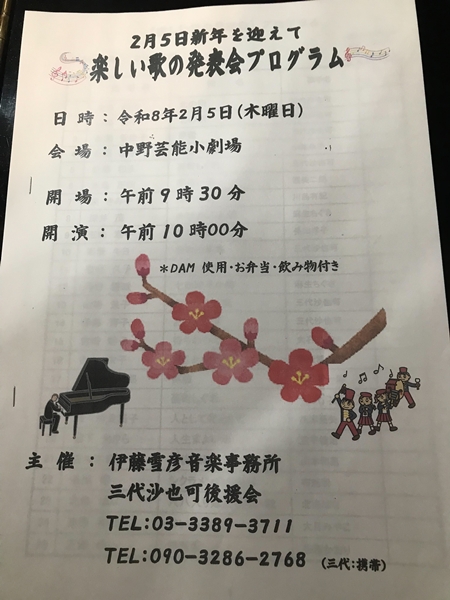 2月5日新年を迎えて
楽しい歌の発表会プログラム
日時：令和8年2月5日(木曜日)
会場：中野芸能小劇場
開場：午前9時30分
開演：午前10時00分
*DAM 使用・お弁当・飲み物付き
主催：伊藤雪彦音楽事務所
三代沙也可後援会
TEL:03-3389-3711
TEL:090-3286-2768 (三代:携帯)